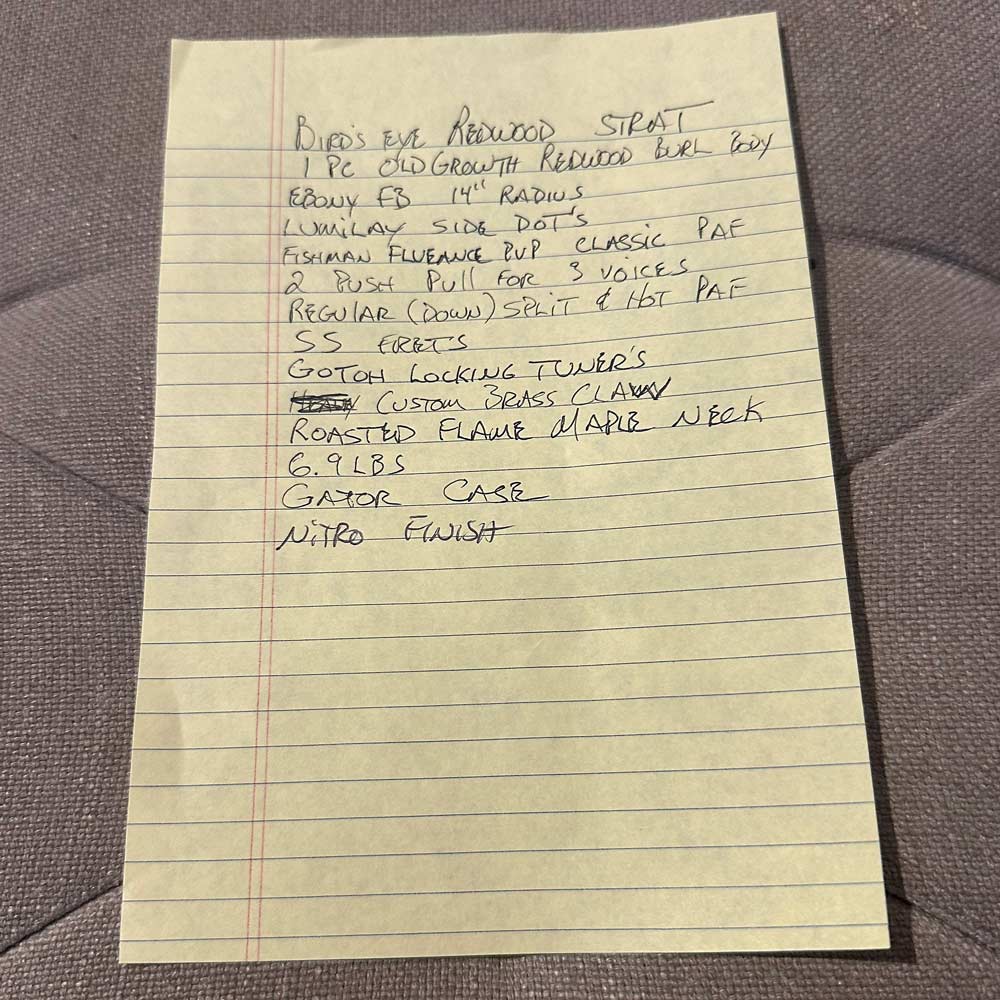 BIRD'S EYE REDWOOD STRAT
1 PC OLD GROWTH REDWOOD BURL BODY
EBONY FB 14" RADIUS
LUMILAY SIDE DOT'S
FISHMAN FLUEANCE PUP CLASSIC PAF
2 PUSH PULL FOR 3 VOICES
REGULAR (DOWN) SPLIT & HOT PAF
SS FRET'S
GOTOH LOCKING TUNER'S
CUSTOM BRASS CLAW
ROASTED FLAME MAPLE NECK
6.9 LBS
GATOR CASE
NITRO FINISH